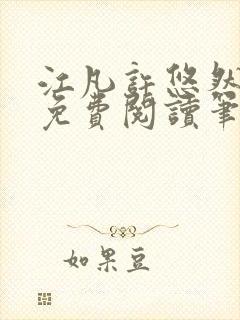 江凡許悠然
免費閱讀筆
如果豆